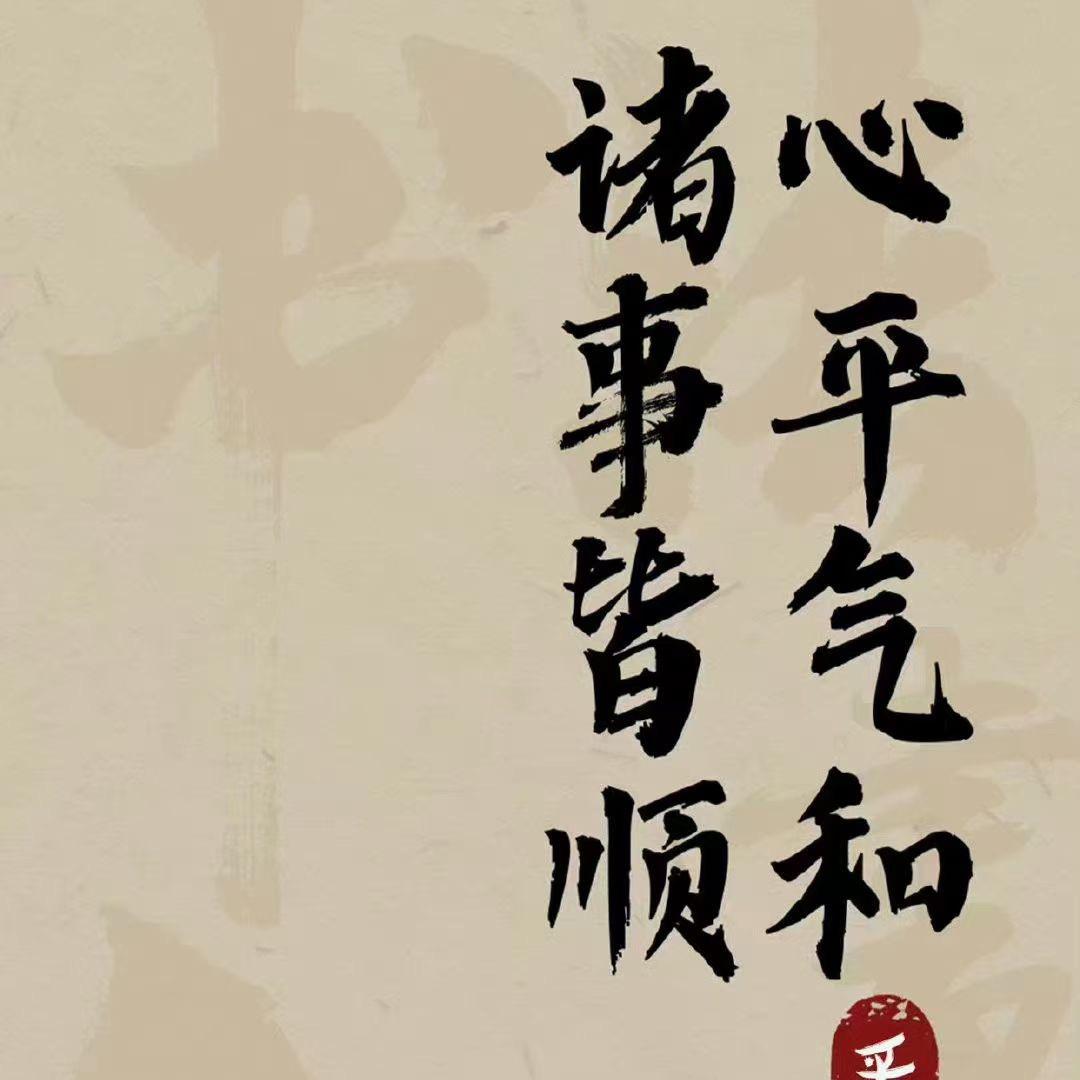 心平气和
诸事皆顺
平